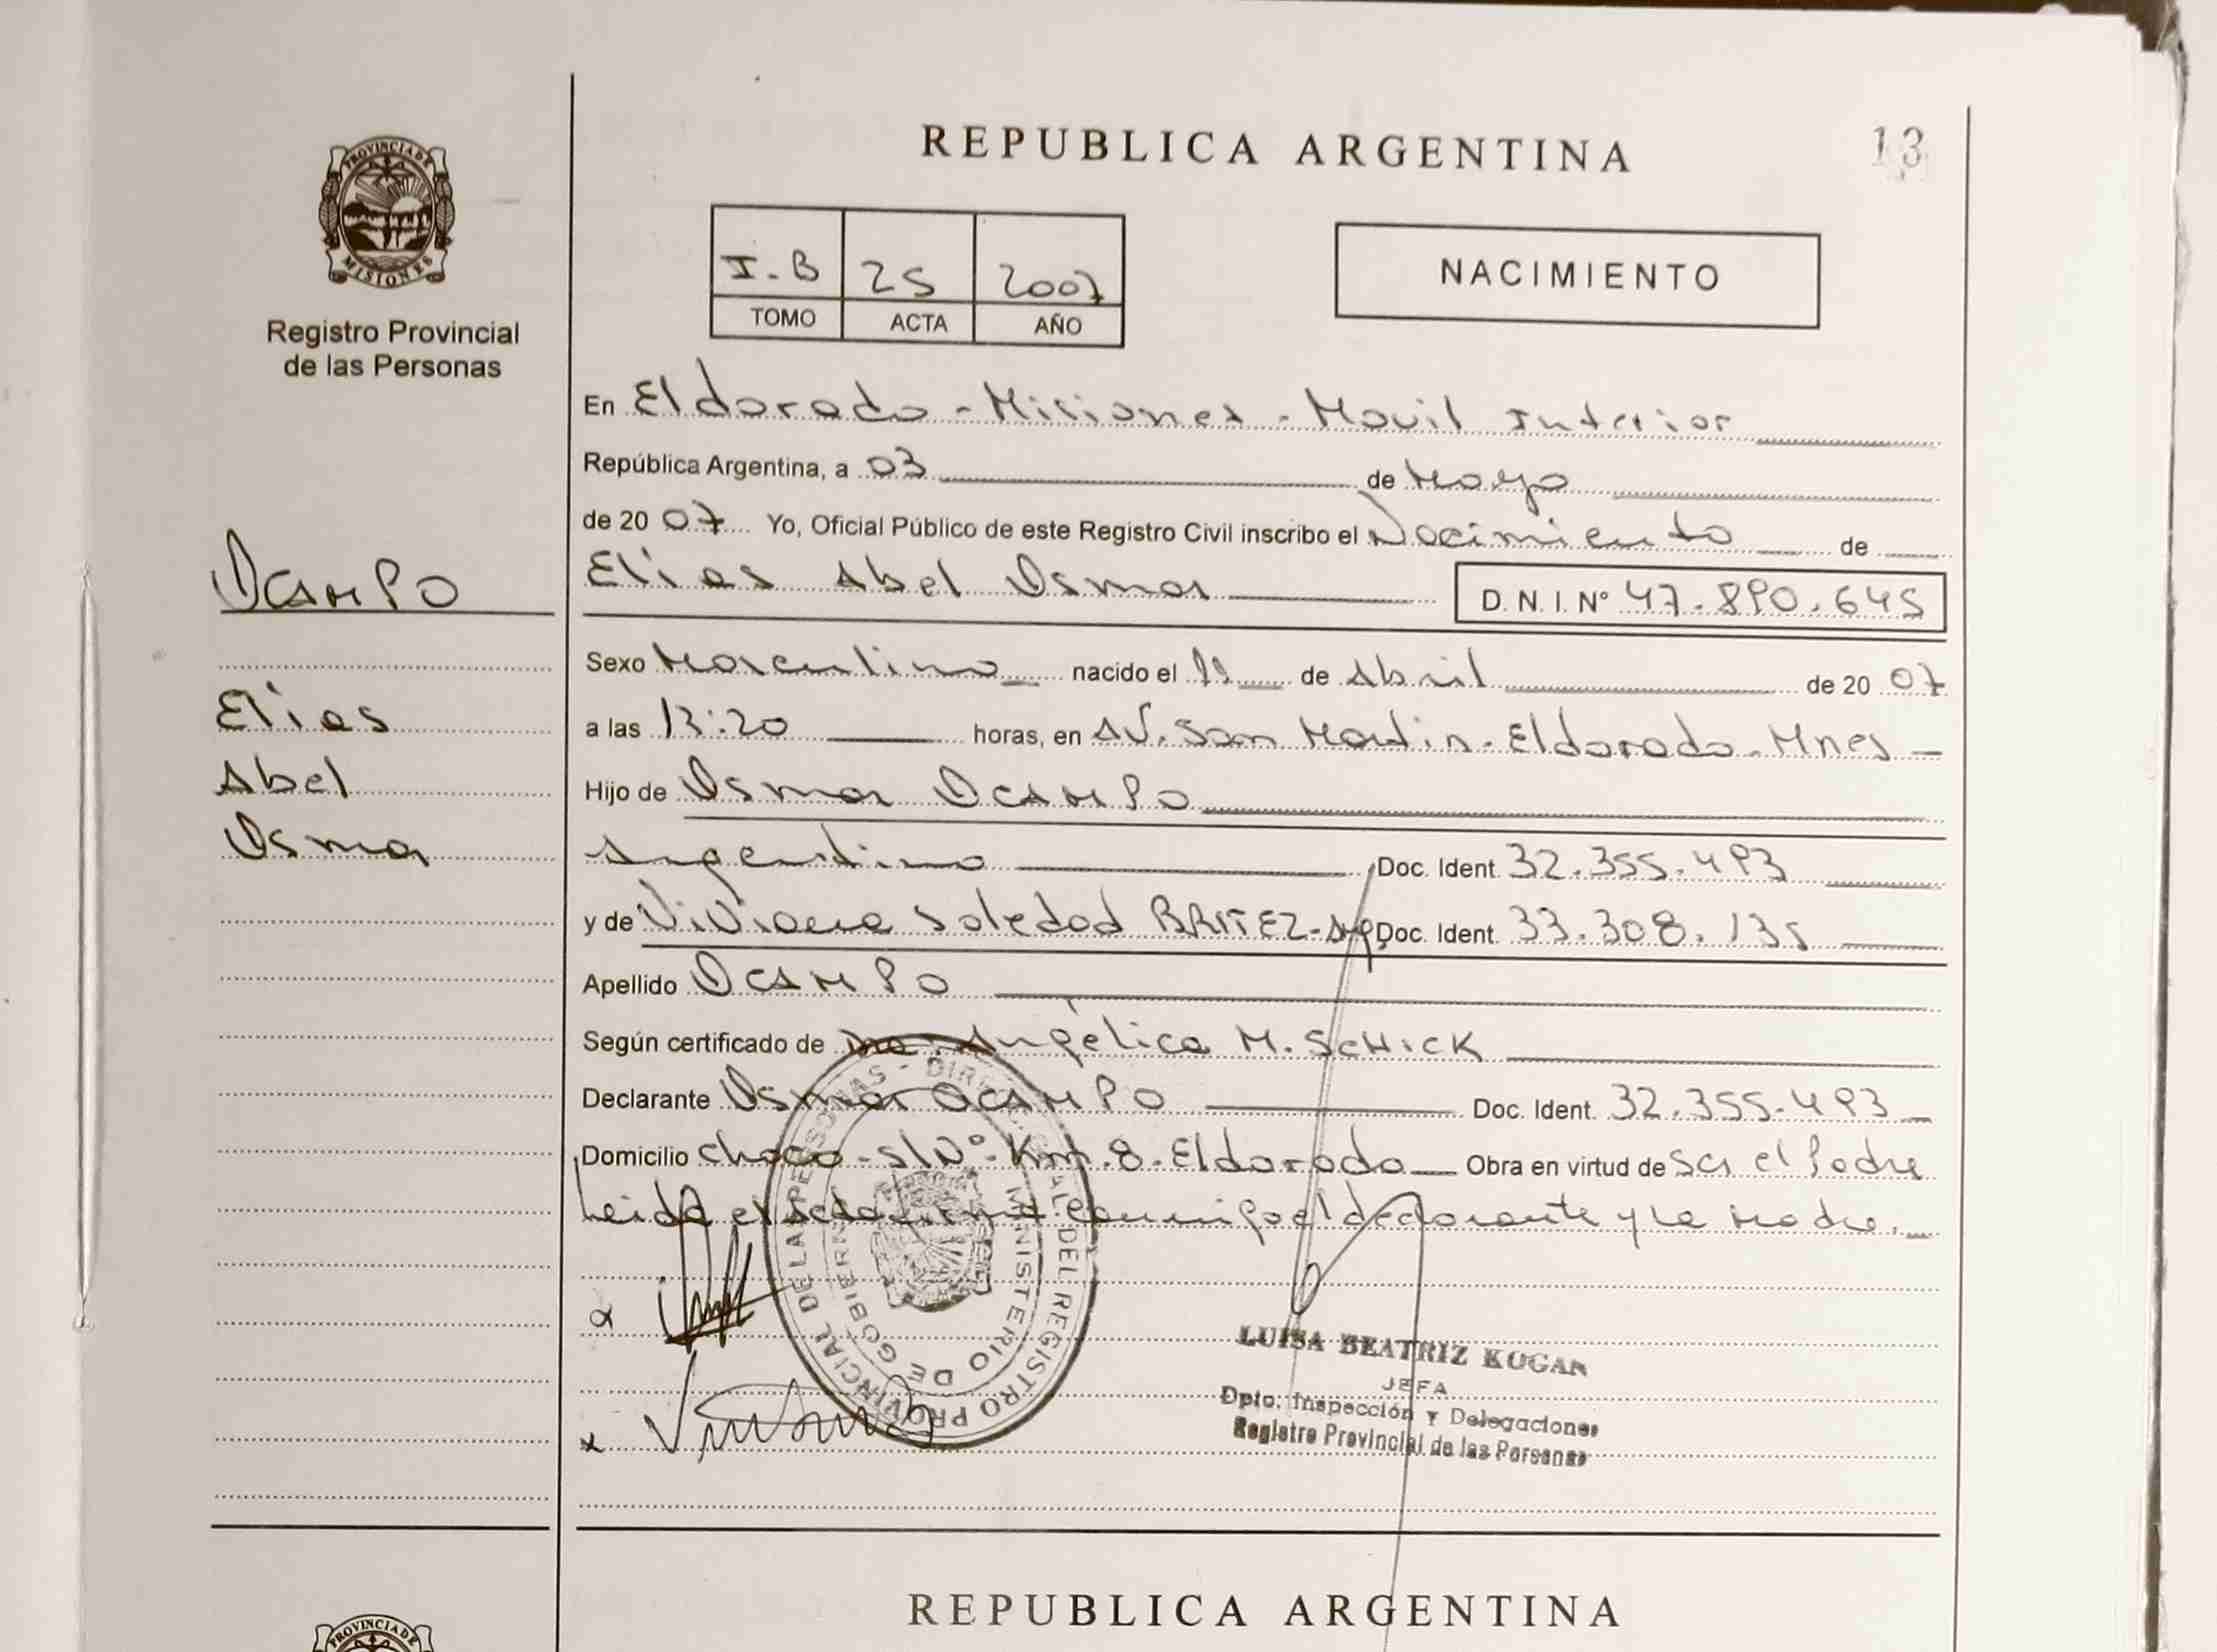 REPUBLICA ARGENTINA
13
PROVINCIA DE MISIONES
Registro Provincial
de las Personas
I-B 25 2007
TOMO ACTA AÑO
NACIMIENTO
En Eldorado - Misiones - Movil Interior
República Argentina, a 03 de Mayo
de 2007 Yo, Oficial Público de este Registro Civil inscribo el Nacimiento de
OCAMPO
Elias Abel Osmar
D. N. I. Nº 47.890.645
Sexo Masculino nacido el 11 de Abril de 2007
Elias
a las 13:20 horas, en AV. San Martin - Eldorado - Mnes
Abel
Hijo de Osmar OCAMPO
Osmar
Argentino Doc. Ident. 32.355.493
y de Viviana Soledad BRITEZ - Arg. Doc. Ident. 33.308.135
Apellido OCAMPO
Según certificado de Angélica M. SCHICK
Declarante Osmar OCAMPO Doc. Ident. 32.355.493
Domicilio Chaco - S/Nº - Km. 8 - Eldorado Obra en virtud de ser el Padre
Leida el acta conmigo el declarante y la Madre.
DIREC. GRAL. DEL REGISTRO PROVINCIAL DE LAS PERSONAS
MINISTERIO DE GOBIERNO
LUISA BEATRIZ KOGAN
JEFA
Dpto. Inspección y Delegaciones
Registro Provincial de las Personas
REPUBLICA ARGENTINA
PROVINCIA DE